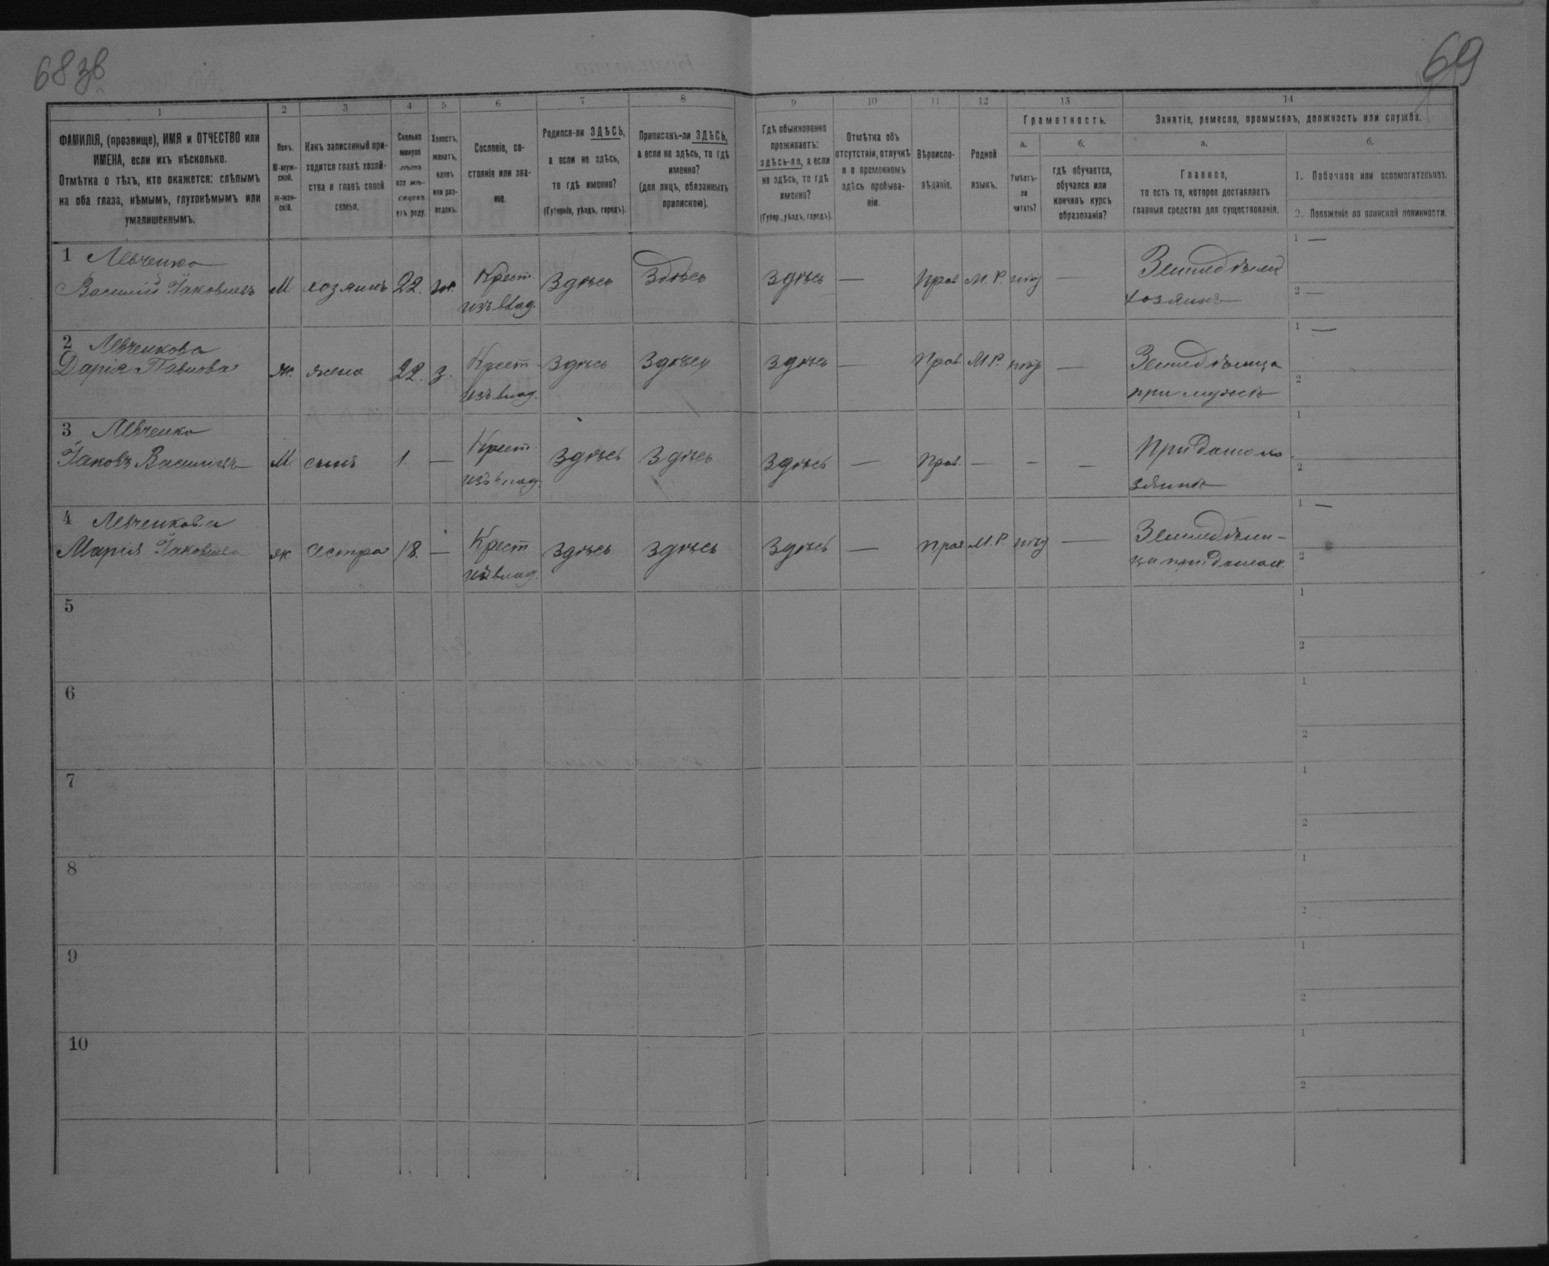 68 зв
69
1
2
3
4
5
6
7
8
9
10
11
12
13
14
ФАМИЛІЯ, (прозвище), ИМЯ и ОТЧЕСТВО или
ИМЕНА, если ихъ нѣсколько.
Отмѣтка о тѣхъ, кто окажется: слѣпымъ
на оба глаза, нѣмымъ, глухонѣмымъ или
умалишеннымъ.
Полъ.
М-муж-
ской.
Ж-жен-
скій.
Какъ записанный при-
ходится главѣ хозяй-
ства и главѣ своей
семьи.
Сколько
минуло
лѣтъ
или мѣ-
сяцевъ
отъ роду.
Холостъ,
женатъ,
вдовъ
или раз-
веденъ.
Сословіе, со-
стояніе или зва-
ніе.
Родился-ли ЗДѢСЬ,
а если не здѣсь,
то гдѣ именно?
(Губернія, уѣздъ, городъ).
Приписанъ-ли ЗДѢСЬ,
а если не здѣсь, то гдѣ
именно?
(для лицъ, обязанныхъ
припискою).
Гдѣ обыкновенно
проживаетъ:
здѣсь-ли, а если
не здѣсь, то гдѣ
именно?
(Губер., уѣздъ, городъ).
Отмѣтка объ
отсутствіи, отлучкѣ
и о временномъ
здѣсь пребыва-
ніи.
Вѣроиспо-
вѣданіе.
Родной
языкъ.
Грамотность.
а.
Умѣетъ-
ли
читать?
б.
гдѣ обучается,
обучался или
кончилъ курсъ
образованія?
Занятіе, ремесло, промыселъ, должность или служба.
а.
Главное,
то есть то, которое доставляетъ
главныя средства для существованія.
б.
1. Побочное или вспомогательное.
2. Положеніе по воинской повинности.
1 Левченко
Василій Іаковлевъ М хозяинъ 22 ж. Крест. здѣсь здѣсь здѣсь — Прав М.Р. нѣту — Земледѣлец 1 —
изъ влад. хозяинъ 2 —
2 Левченкова
Дарія Павлова ж. жена 22. з. Крест здѣсь здѣсь здѣсь — Прав М.Р. нѣту — Земледѣлица 1 —
изъ влад. при мужѣ 2
3 Левченко
Іаковъ Васильевъ М сынъ 1. — Крест. здѣсь здѣсь здѣсь — Прав. — — — При 1
изъ влад. 2
4 Левченкова
Марія Іаковлева ж сестра 18. — Крест здѣсь здѣсь здѣсь — Прав М.Р. нѣту — Земледѣли- 1 —
изъ влад. ца при 2
5 1
2
6 1
2
7 1
2
8 1
2
9 1
2
10 1
2